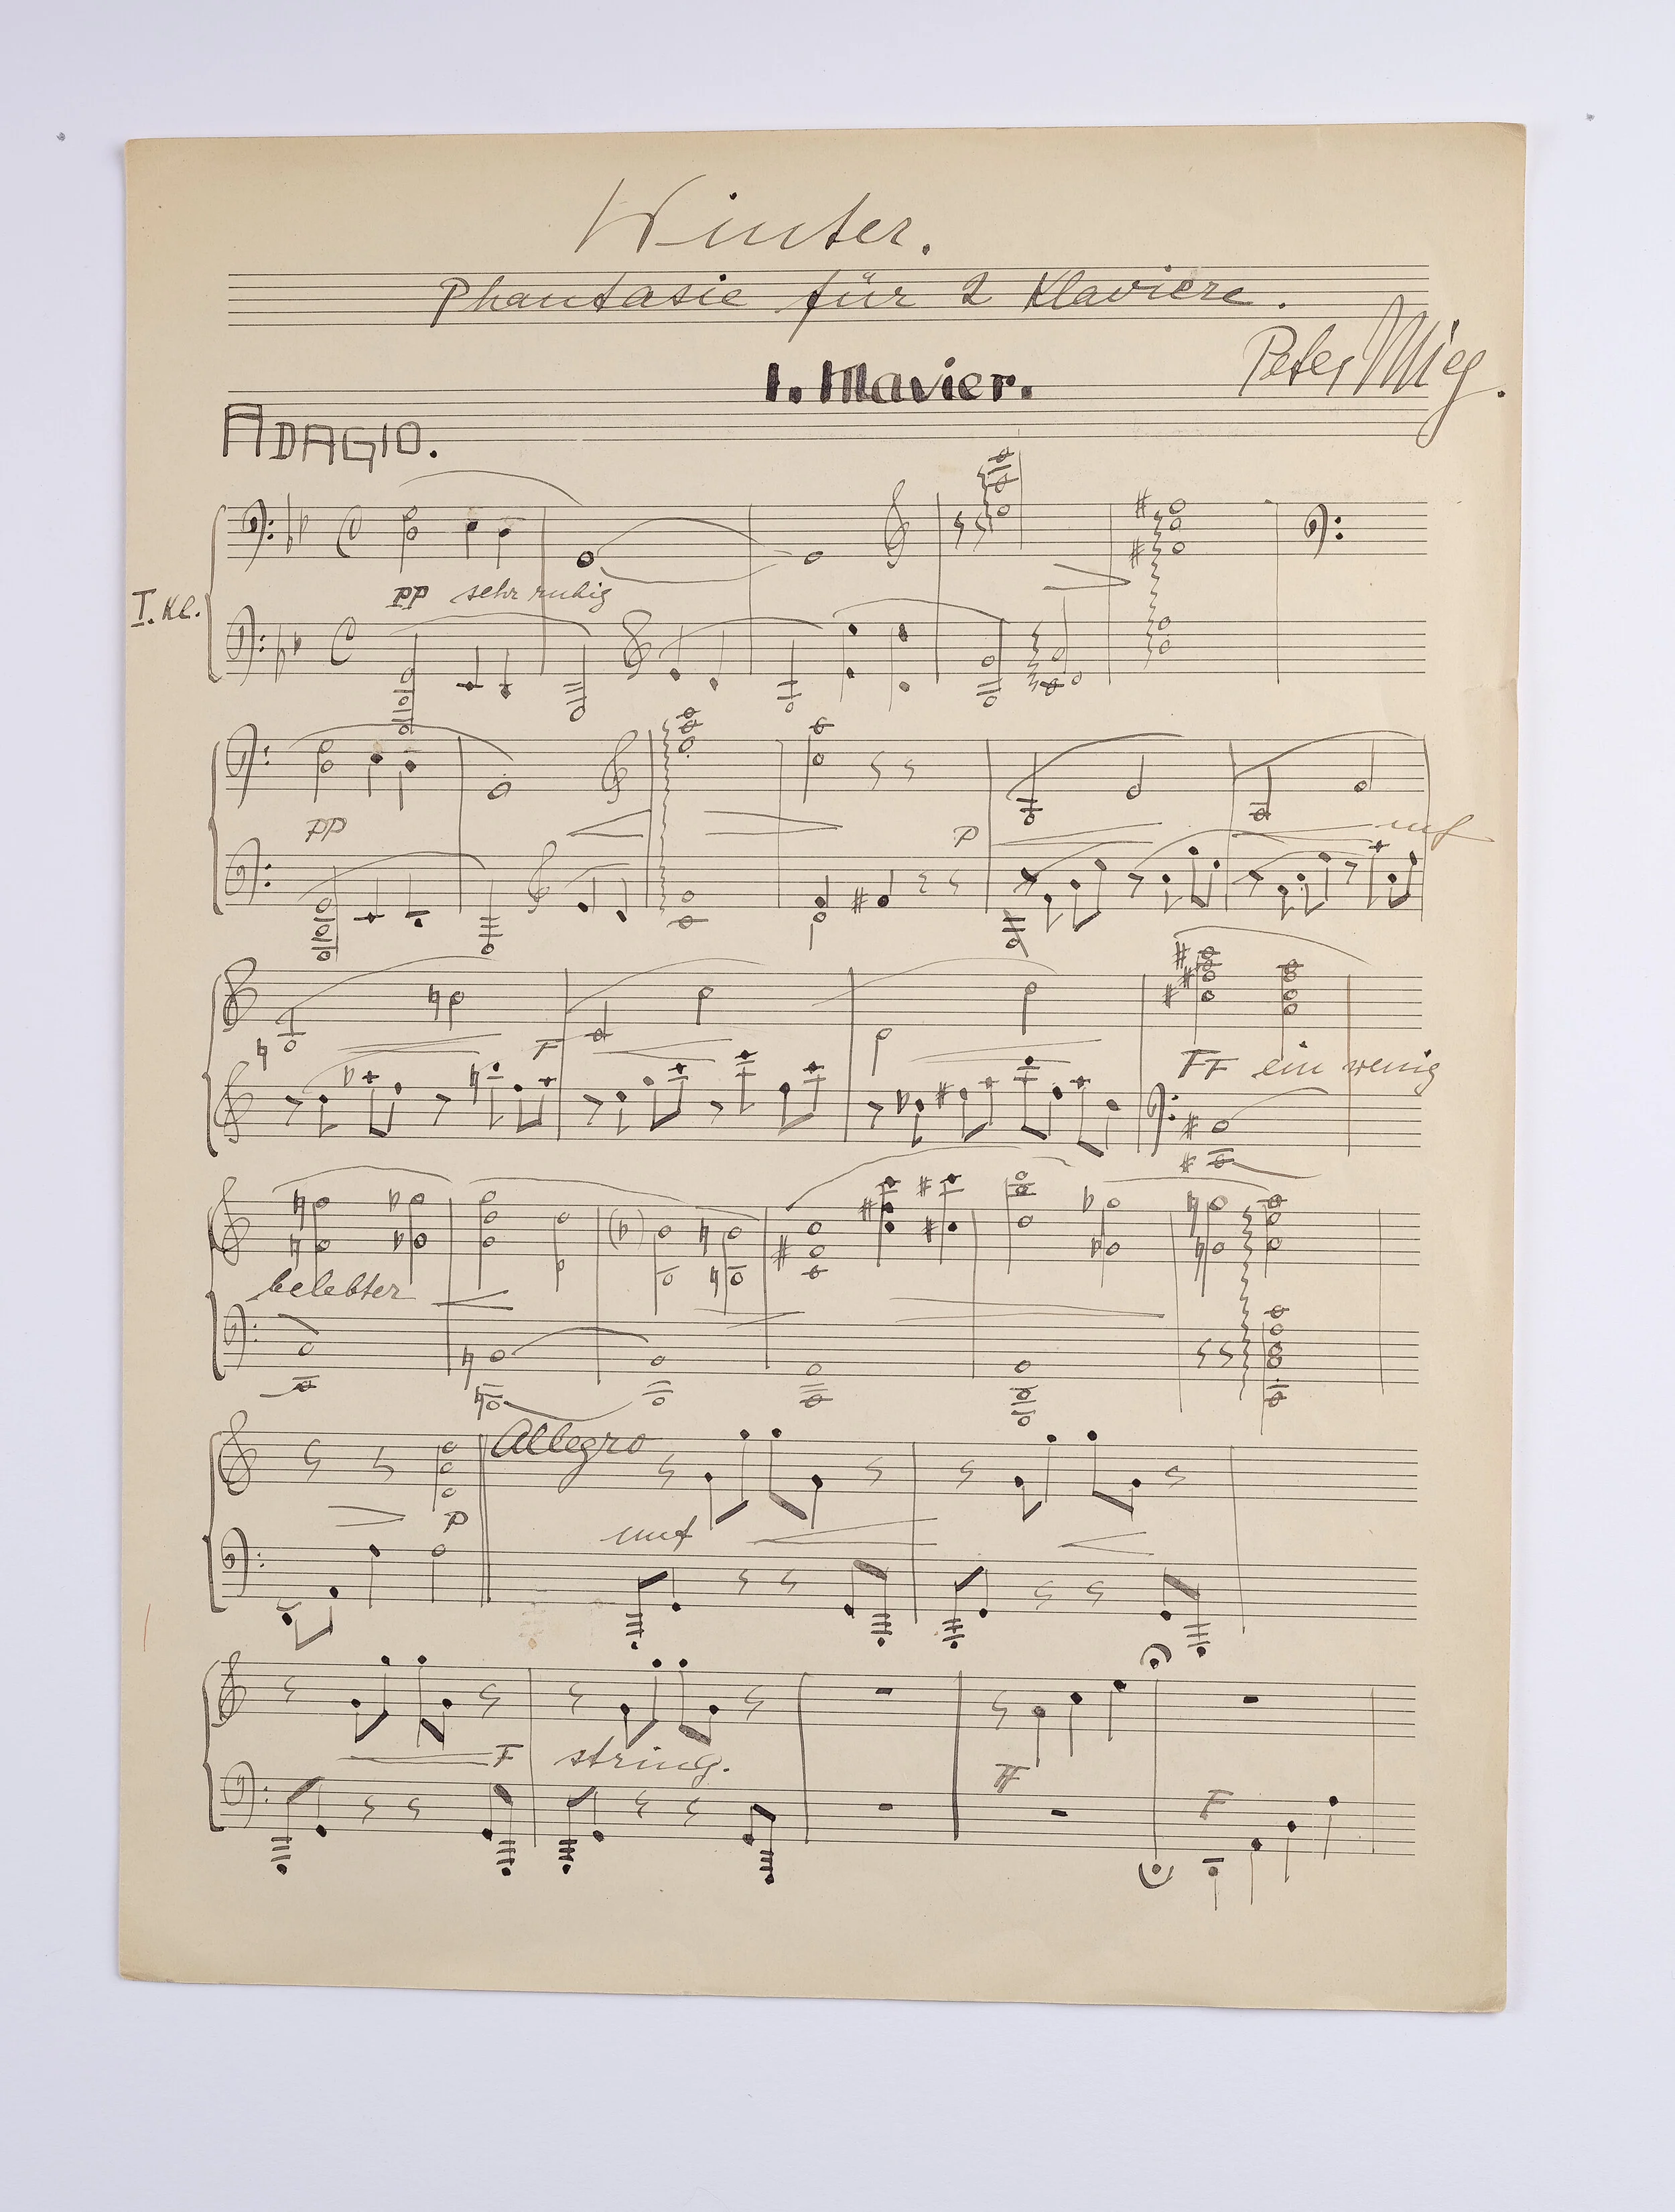 Winter.
Phantasie für 2 Klaviere.
Peter Mieg.
I. Klavier.
ADAGIO.
pp sehr ruhig
I. Kl.
pp
p
mf
F
FF ein wenig
belebter
Allegro
p
mf
F string.
FF
F